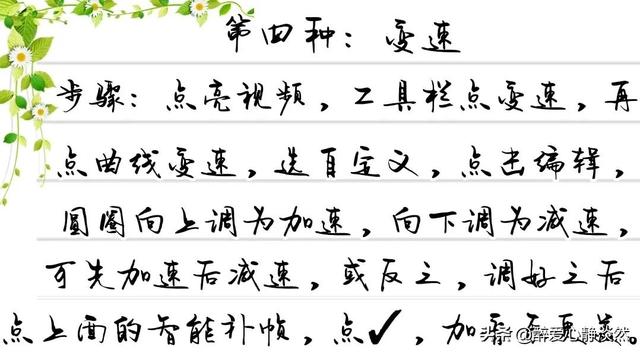 第四种：变速
步骤：点亮视频，工具栏点变速，再
点曲线变速，选自定义，点击编辑，
圆圈向上调为加速，向下调为减速，
可先加速后减速，或反之，调好之后
点上面的智能补帧，点✓，加
头条 @醉爱心静谈然